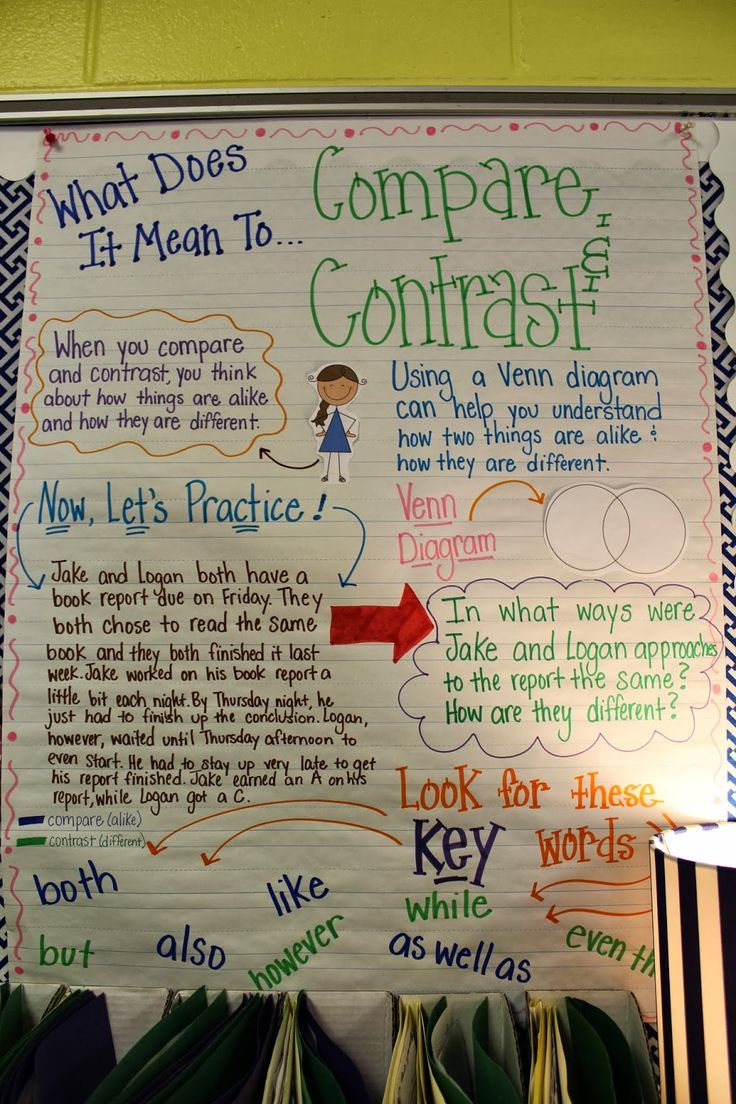 What Does
It Mean To...
Compare
&
Contrast
When you compare
and contrast, you think
about how things are alike
and how they are different.
Using a Venn diagram
can help you understand
how two things are alike &
how they are different.
Venn
Diagram
Now, Let's Practice!
Jake and Logan both have a
book report due on Friday. They
both chose to read the same
book and they both finished it last
week. Jake worked on his book report a
little bit each night. By Thursday night, he
just had to finish up the conclusion. Logan,
however, waited until Thursday afternoon to
even start. He had to stay up very late to get
his report finished. Jake earned an A on his
report, while Logan got a C.
In what ways were
Jake and Logan approaches
to the report the same?
How are they different?
compare (alike)
contrast (different)
Look for these
Key words
both
like
while
but
also
however
as well as
even